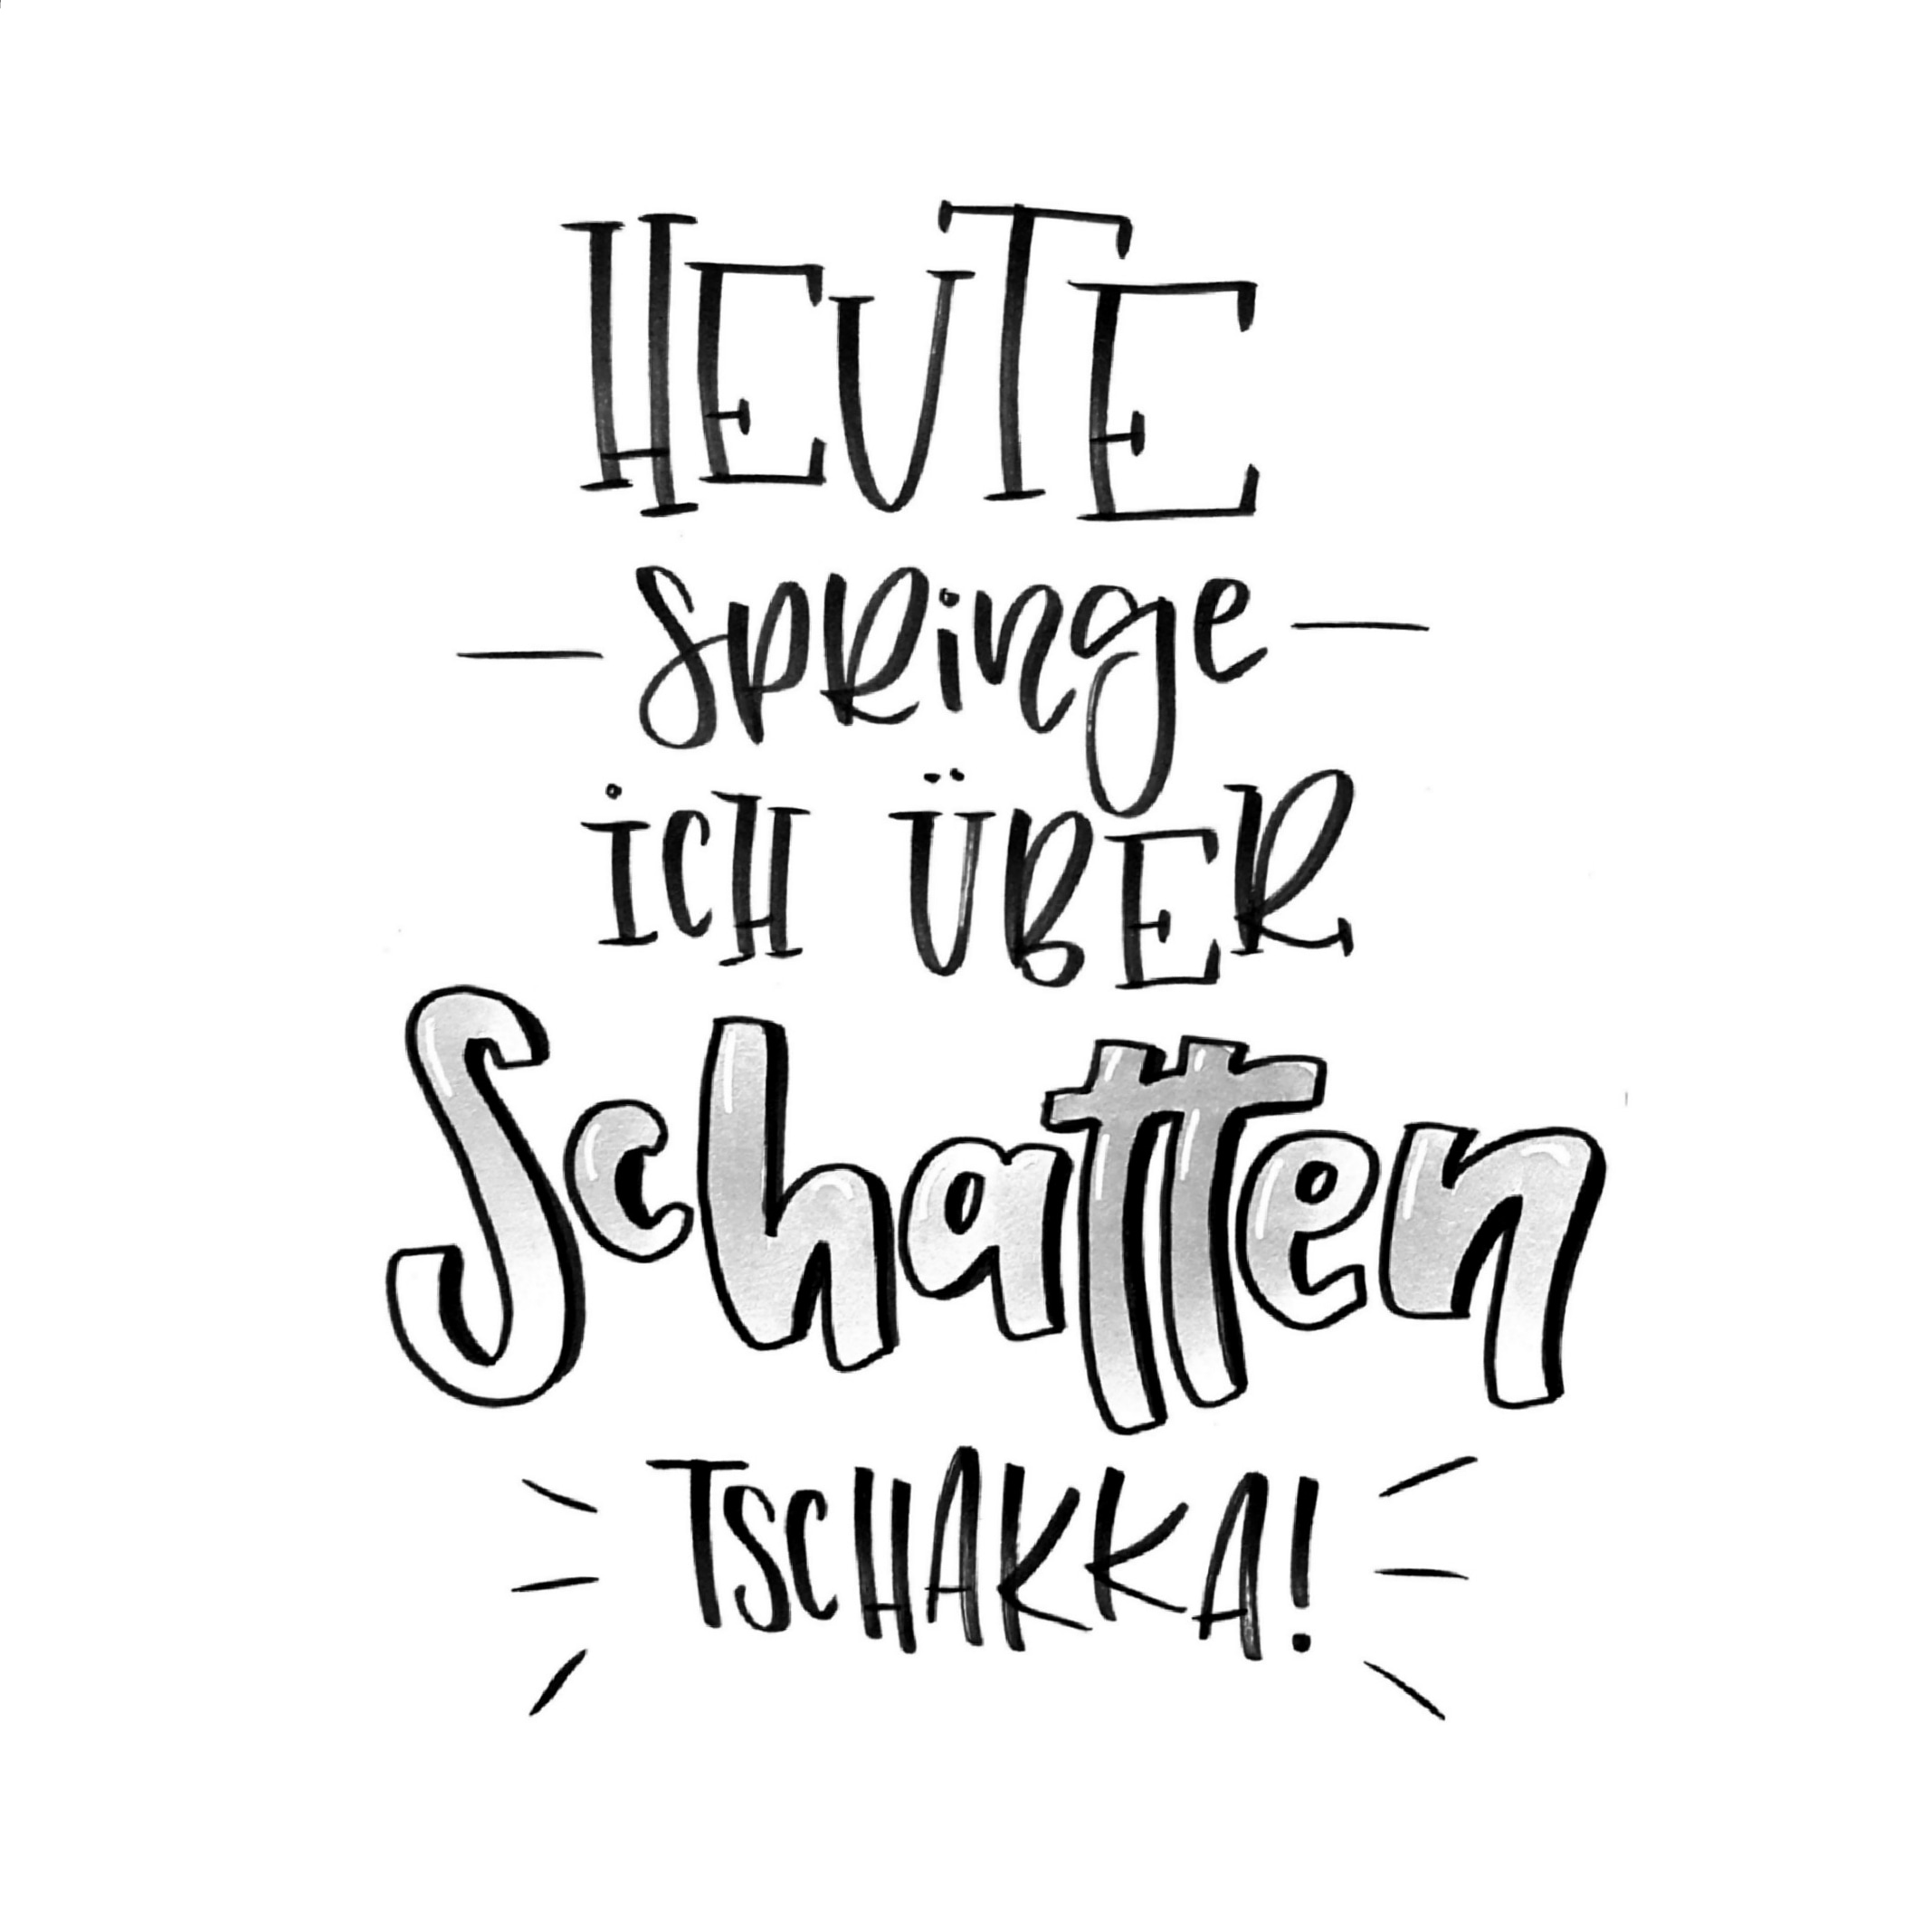 HEUTE
springe
ICH ÜBER
Schatten
TSCHAKKA!